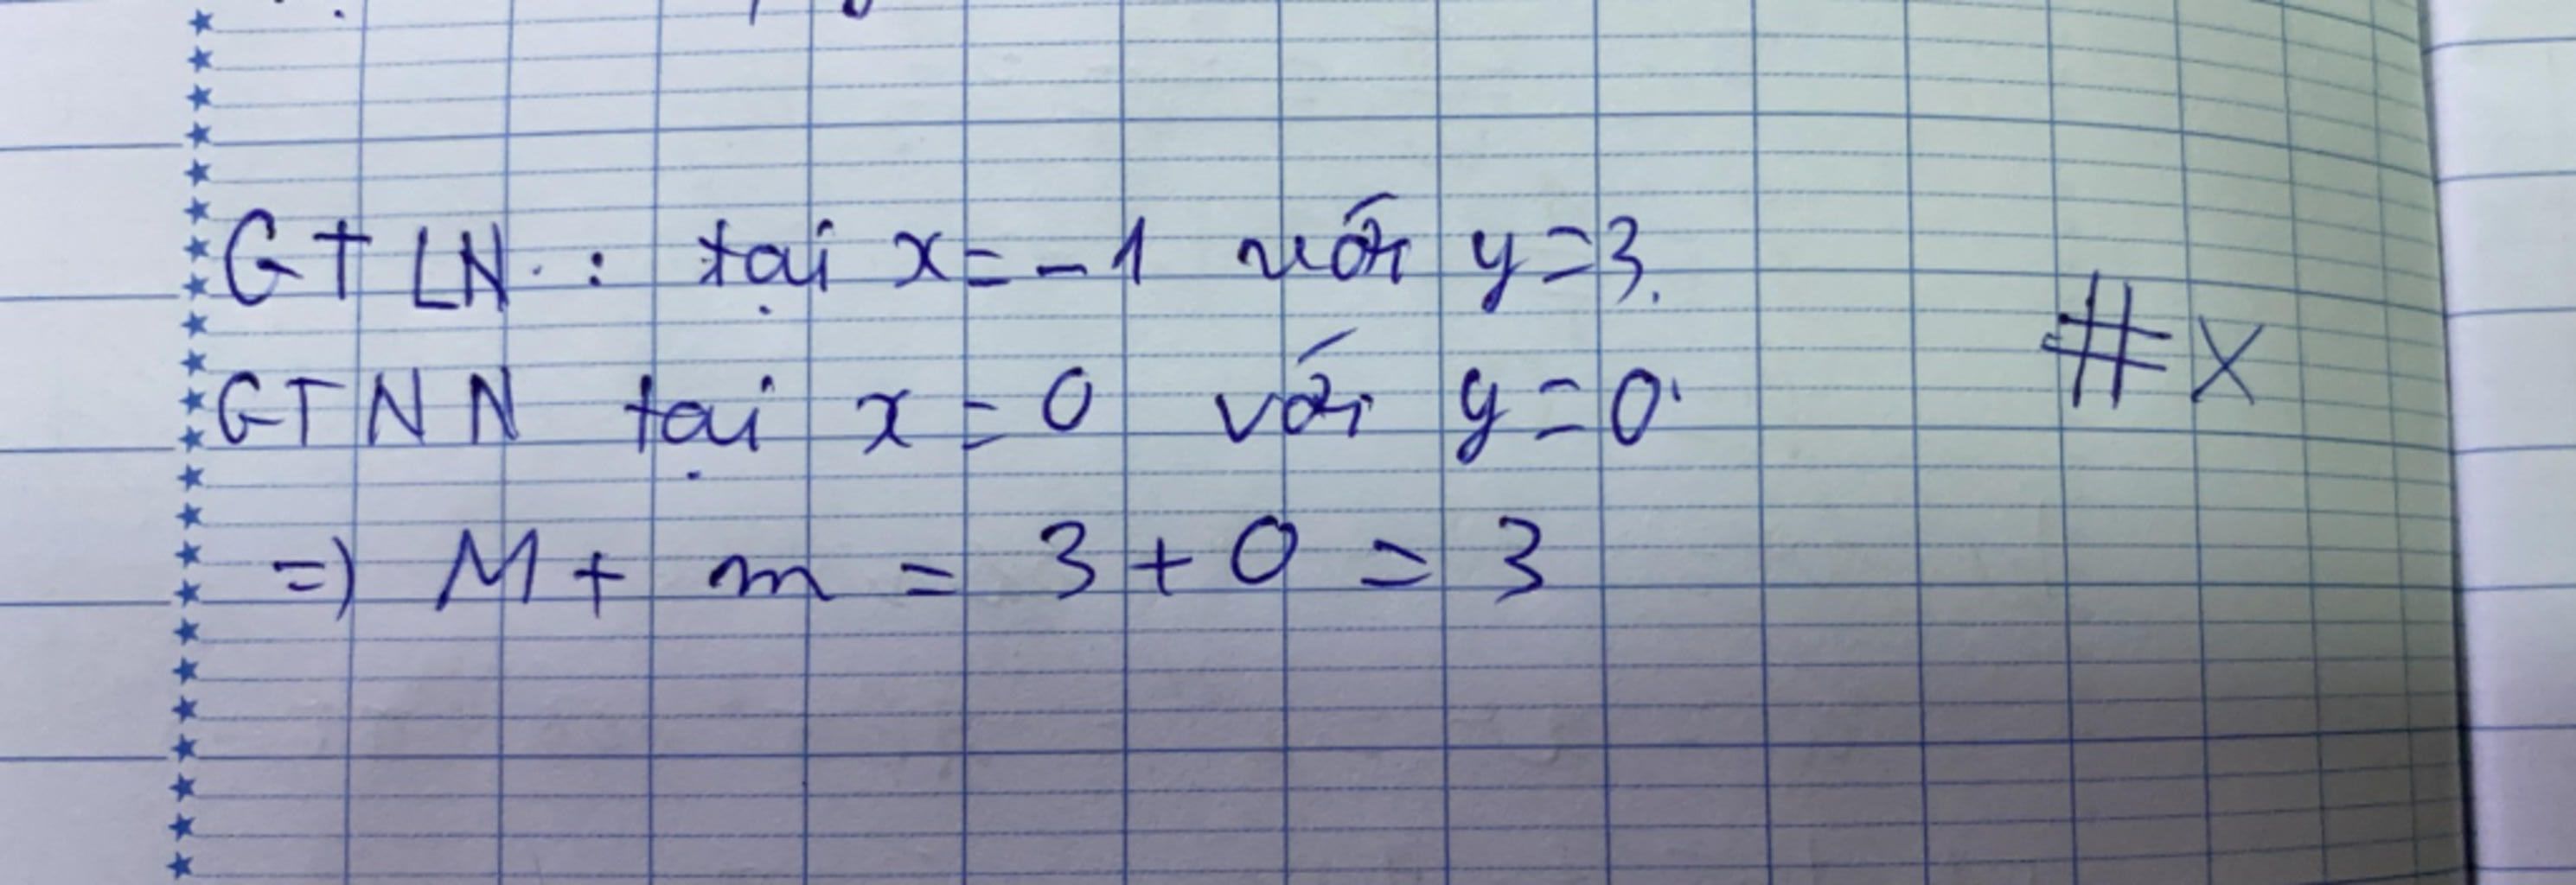 GTLN. : tại x = -1 với y = 3.
GTNN tại x = 0 với y = 0.
=) M + m = 3 + 0 = 3
#X